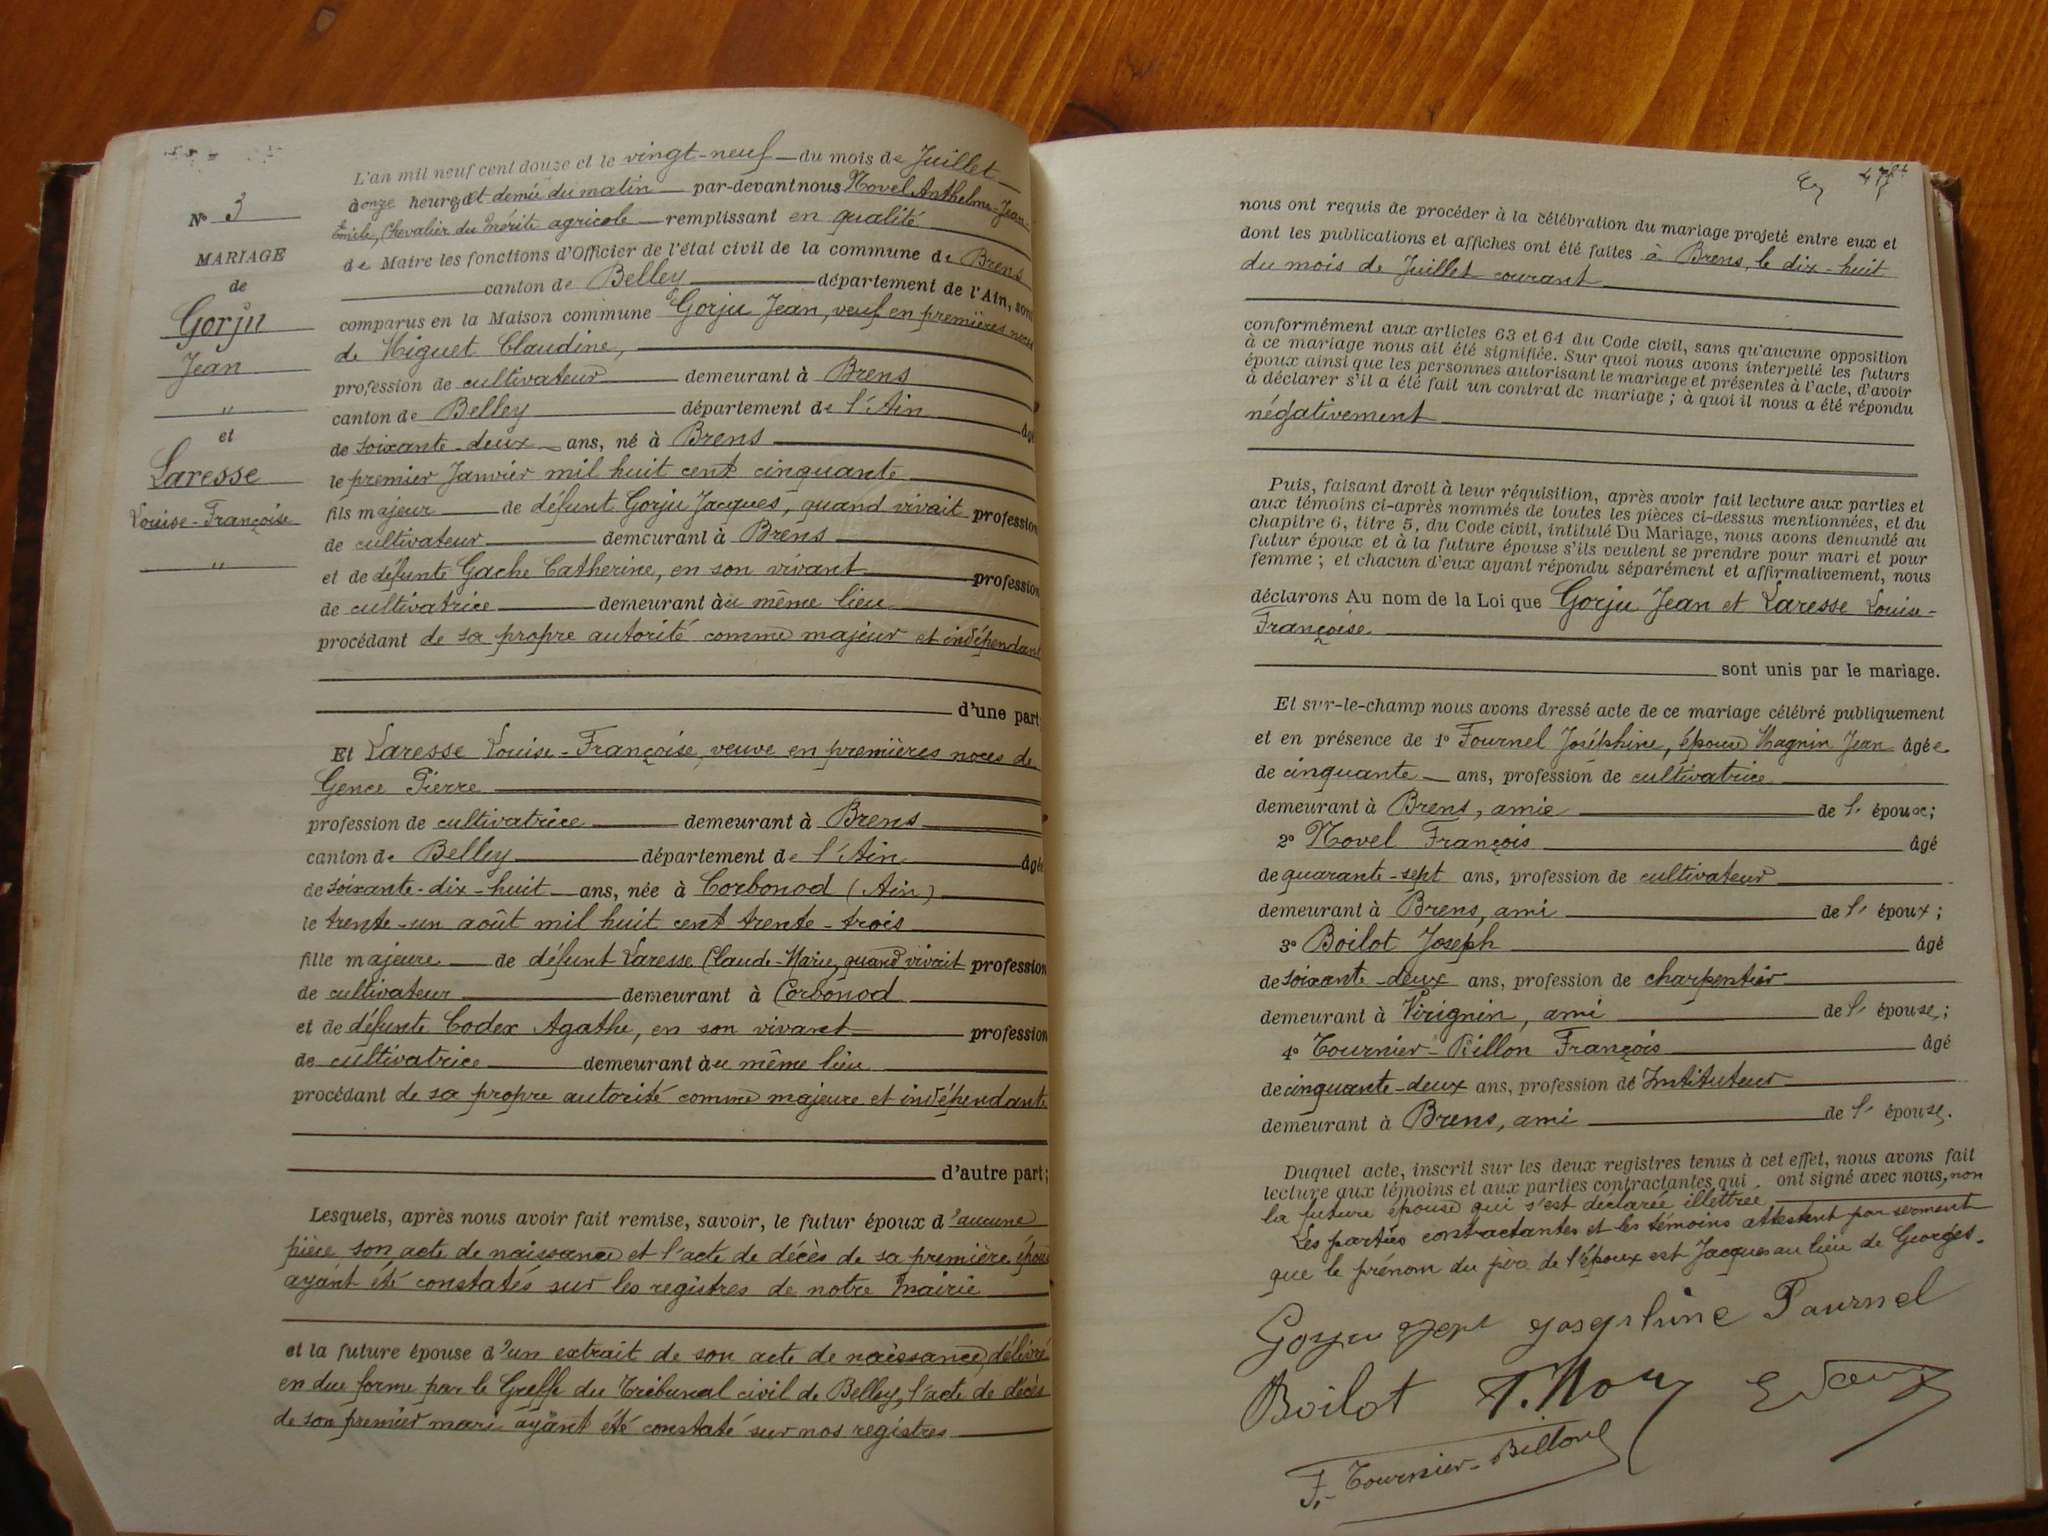 N° 3
MARIAGE
de
Gorju
Jean
"
et
Laresse
Louise-Françoise
"
L'an mil neuf cent douze et le vingt-neuf du mois de Juillet
à onze heures et demie du matin par-devant nous Novel Anthelme-Jean-
Emile, Chevalier du Mérite agricole remplissant en qualité
de Maire les fonctions d'Officier de l'état civil de la commune de Brens
canton de Belley département de l'Ain, sont
comparus en la Maison commune Gorju Jean, veuf en premières noces
de Miguet Claudine,
profession de cultivateur demeurant à Brens
canton de Belley département de l'Ain âgé
de soixante-deux ans, né à Brens
le premier Janvier mil huit cent cinquante
fils majeur de défunt Gorju Jacques, quand vivait profession
de cultivateur demeurant à Brens
et de défunte Gache Catherine, en son vivant profession
de cultivatrice demeurant au même lieu
procédant de sa propre autorité comme majeur et indépendant
d'une part
Et Laresse Louise-Françoise, veuve en premières noces de
Gence Pierre
profession de cultivatrice demeurant à Brens
canton de Belley département de l'Ain âgée
de soixante-dix-huit ans, née à Corbonod (Ain)
le trente-un août mil huit cent trente-trois
fille majeure de défunt Laresse Claude-Marie, quand vivait profession
de cultivateur demeurant à Corbonod
et de défunte Codex Agathe, en son vivant profession
de cultivatrice demeurant au même lieu
procédant de sa propre autorité comme majeure et indépendante
d'autre part;
Lesquels, après nous avoir fait remise, savoir, le futur époux d'aucune
pièce son acte de naissance et l'acte de décès de sa première épouse
ayant été constatés sur les registres de notre Mairie
et la future épouse d'un extrait de son acte de naissance, délivré
en due forme par le Greffe du Tribunal civil de Belley, l'acte de décès
de son premier mari ayant été constaté sur nos registres
nous ont requis de procéder à la célébration du mariage projeté entre eux et
dont les publications et affiches ont été faites à Brens, le dix-huit
du mois de Juillet courant
conformément aux articles 63 et 64 du Code civil, sans qu'aucune opposition
à ce mariage nous ait été signifiée. Sur quoi nous avons interpellé les futurs
époux ainsi que les personnes autorisant le mariage et présentes à l'acte, d'avoir
à déclarer s'il a été fait un contrat de mariage; à quoi il nous a été répondu
négativement
Puis, faisant droit à leur réquisition, après avoir fait lecture aux parties et
aux témoins ci-après nommés de toutes les pièces ci-dessus mentionnées, et du
chapitre 6, titre 5, du Code civil, intitulé Du Mariage, nous avons demandé au
futur époux et à la future épouse s'ils veulent se prendre pour mari et pour
femme; et chacun d'eux ayant répondu séparément et affirmativement, nous
déclarons Au nom de la Loi que Gorju Jean et Laresse Louise-
Françoise
sont unis par le mariage.
Et sur-le-champ nous avons dressé acte de ce mariage célébré publiquement
et en présence de 1° Fournel Joséphine, épouse Magnin Jean âgée
de cinquante ans, profession de cultivatrice
demeurant à Brens, amie de l'épouse;
2° Novel François âgé
de quarante-sept ans, profession de cultivateur
demeurant à Brens, ami de l'époux;
3° Boilot Joseph âgé
de soixante-deux ans, profession de charpentier
demeurant à Virignin, ami de l'épouse;
4° Tournier-Billon François âgé
de cinquante-deux ans, profession de Instituteur
demeurant à Brens, ami de l'épouse.
Duquel acte, inscrit sur les deux registres tenus à cet effet, nous avons fait
lecture aux témoins et aux parties contractantes qui ont signé avec nous, non
la future épouse qui s'est déclarée illettrée
Les parties contractantes et les témoins attestent par serment
que le prénom du père de l'époux est Jacques au lieu de Georges.
Gorju Josephine Fournel
Boilot
F. Tournier-Billon